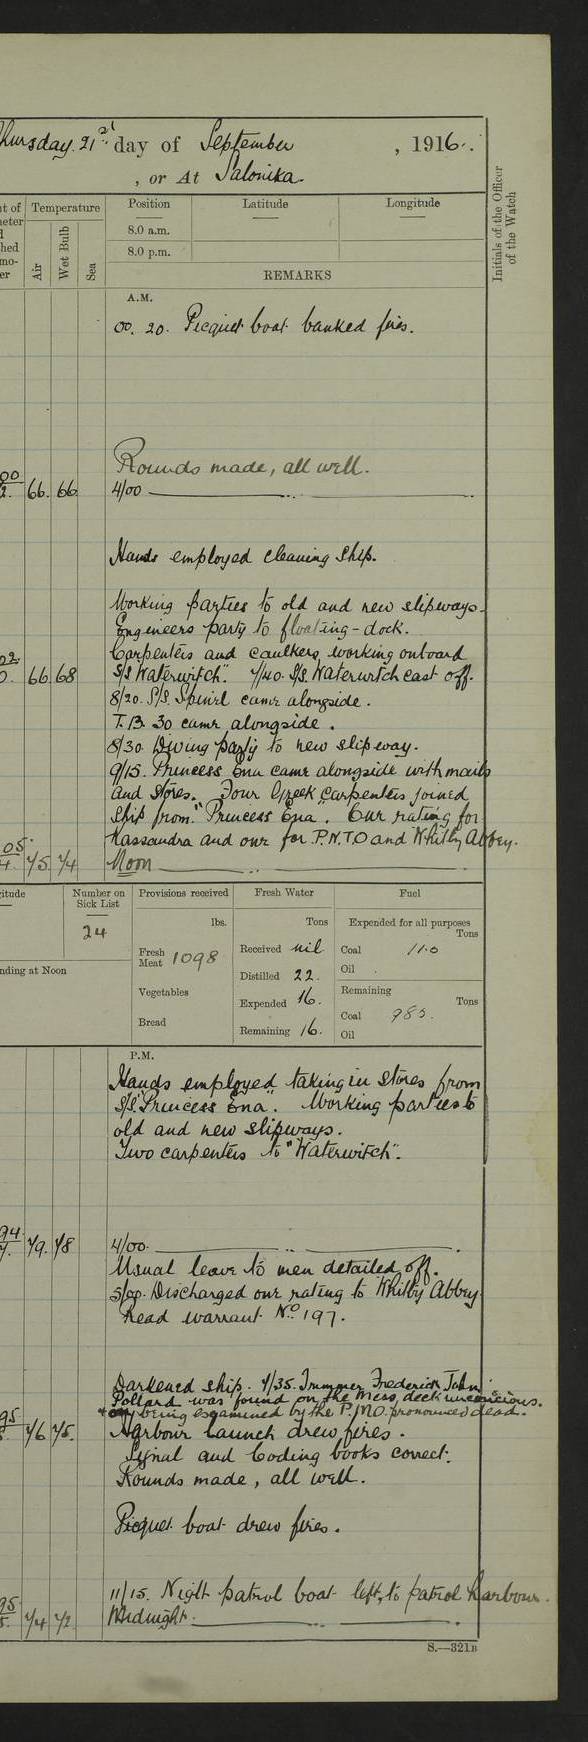 Thursday 21st day of September, 1916.
, or At Salonika.
Temperature
Air
Wet Bulb
Sea
Position
Latitude
Longitude
8.0 a.m.
8.0 p.m.
REMARKS
Initials of the Officer
of the Watch
A.M.
00.20. Picquet boat banked fires.
Rounds made, all well.
66. 66 4/00
Hands employed cleaning ship.
Working parties to old and new slipways.
Engineers party to floating-dock.
Carpenters and caulkers working onboard
66 68 S/S "Waterwitch". 7/40. S/S. Waterwitch cast off.
8/20. S/S. Spinel came alongside.
T.B. 30 came alongside.
8/30 Diving party to new slipway.
9/15. Princess Ena came alongside with mails
and stores. Four Greek carpenters joined
ship from "Princess Ena". One rating for
Kassandra and one for P.N.T.O and Whitby Abbey.
75. 74 Noon
Number on
Sick List
24
Provisions received
lbs.
Fresh
Meat 1098
Vegetables
Bread
Fresh Water
Tons
Received nil
Distilled 22.
Expended 16.
Remaining 16.
Fuel
Expended for all purposes
Tons
Coal 11.0
Oil
Remaining
Tons
Coal 985.
Oil
P.M.
Hands employed taking in stores from
S/S. "Princess Ena". Working parties to
old and new slipways.
Two carpenters to "Waterwitch".
79. 78 4/00.
Usual leave to men detailed off.
5/00. Discharged one rating to Whitby Abbey.
Read warrant No. 197.
Darkened ship. 7/35. Trimmer Frederick John
Pollard was found on the Mess deck unconcious.
& on being examined by the P.M.O. pronounced dead.
76 75. Harbour launch drew fires.
Signal and Coding books correct.
Rounds made, all well.
Picquet boat drew fires.
11/15. Night patrol boat left, to patrol harbour.
74 72. Midnight.
S.—321B